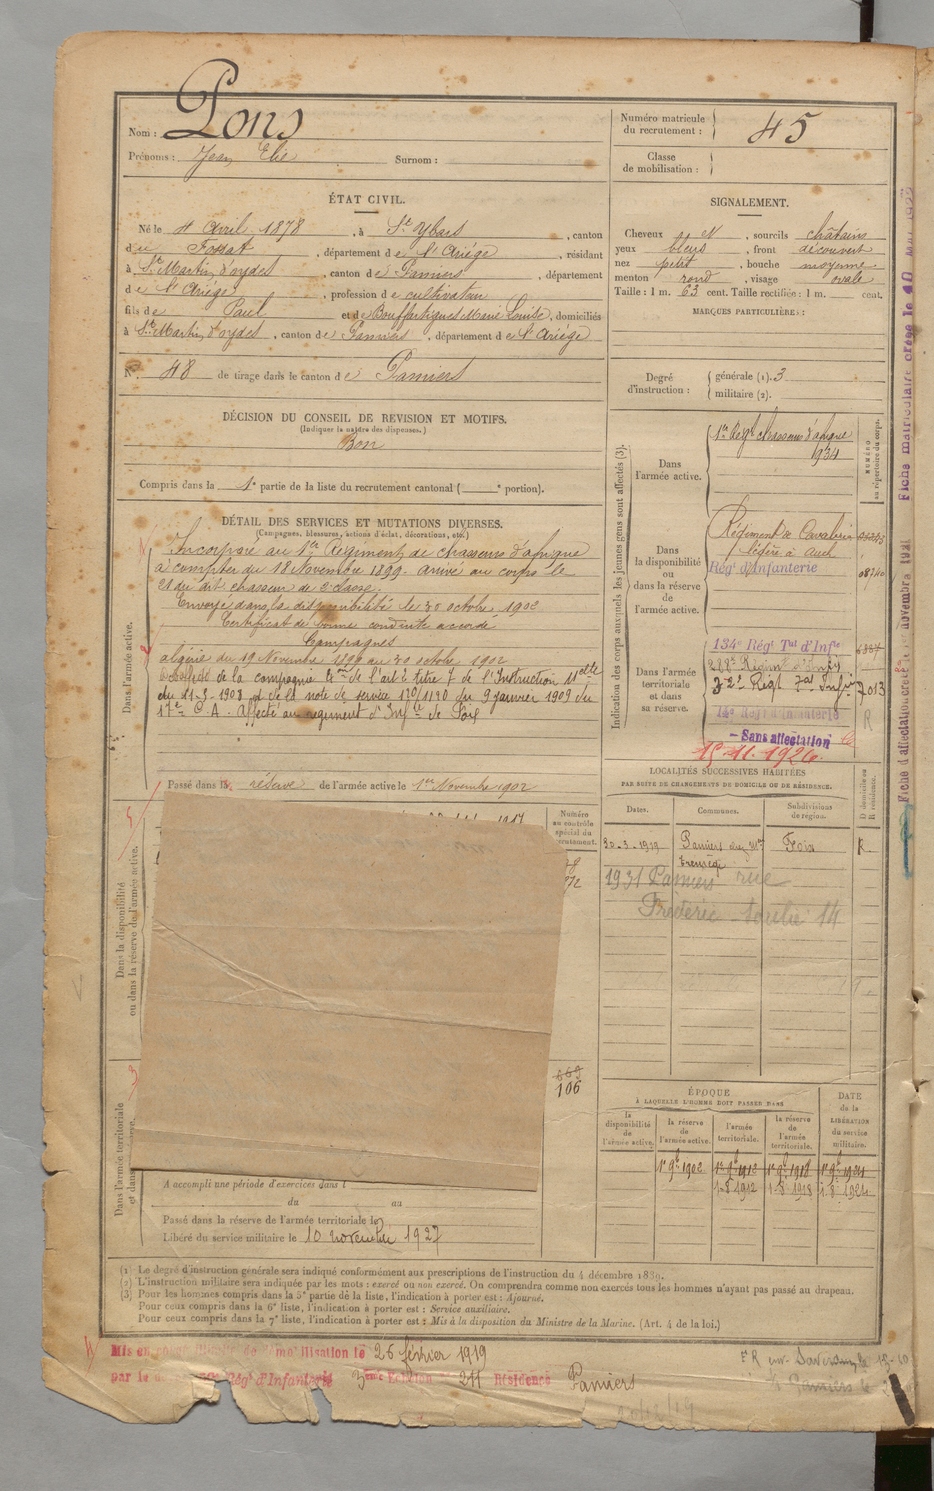 Nom : Pons
Prénoms : Jean Elie Surnom :
Numéro matricule du recrutement : 45
Classe de mobilisation :
ÉTAT CIVIL.
Né le 4 Avril 1878, à St Ybars, canton
de Fossat, département de l'Ariége, résidant
à St Martin d'oydes, canton de Pamiers, département
de l'Ariége, profession de cultivateur
fils de Paul et de Bouffartigues Marie Louise, domiciliés
à St Martin d'oydes, canton de Pamiers, département de l'Ariége
N° 48 de tirage dans le canton de Pamiers
SIGNALEMENT.
Cheveux et, sourcils châtains
yeux bleus, front découvert
nez petit, bouche moyenne
menton rond, visage ovale
Taille : 1 m. 63 cent. Taille rectifiée : 1 m. cent.
MARQUES PARTICULIÈRES :
Degré d'instruction : générale (1). 3
militaire (2).
DÉCISION DU CONSEIL DE REVISION ET MOTIFS.
(Indiquer la nature des dispenses.)
Bon
Compris dans la 1e partie de la liste du recrutement cantonal ( e portion).
DÉTAIL DES SERVICES ET MUTATIONS DIVERSES.
(Campagnes, blessures, actions d'éclat, décorations, etc.)
Dans l'armée active.
Incorporé au 1er Régiment de chasseurs d'afrique
à compter du 18 Novembre 1899. arrivé au corps le
et du dit chasseur de 2e classe.
Envoyé dans la disponibilité le 30 octobre 1902
Certificat de bonne conduite accordé
Campagnes
algérie du 19 Novembre 1899 au 30 octobre 1902
de la compagnie de l'art 2 titre 7 de l'Instruction
du 21-3-1908 et de la note de service 120/1120 du 9 janvier 1909 du
17e C.A. Affecté au régiment d'Infie de Foix
Passé dans la réserve de l'armée active le 1er Novembre 1902
Indication des corps auxquels les jeunes gens sont affectés (3).
NUMÉRO au répertoire du corps.
Dans l'armée active.
1er Régt chasseurs d'afrique
1934
Dans la disponibilité ou dans la réserve de l'armée active.
Régiment de Cavalerie
légère à Auch
Régt d'Infanterie
08740
Dans l'armée territoriale et dans sa réserve.
134e Régt Tal d'Infie
7013
R
— Sans affectation
15-11-1926.
Fiche matriculaire créée le 10
Fiche d'affectation créée novembre 1921
LOCALITÉS SUCCESSIVES HABITÉES
PAR SUITE DE CHANGEMENTS DE DOMICILE OU DE RÉSIDENCE.
D domicile ou R résidence.
Dates. Communes. Subdivisions de région.
30-3-1919 Pamiers Foix R.
1931 Pamiers rue
Frédéric Soulié 14
Dans la disponibilité ou dans la réserve de l'armée active.
1917
Numéro au contrôle spécial du recrutement.
106
Dans l'armée territoriale et dans
A accompli une période d'exercices dans l
du au
Passé dans la réserve de l'armée territoriale le
Libéré du service militaire le 10 novembre 1927
ÉPOQUE
À LAQUELLE L'HOMME DOIT PASSER DANS
DATE de la LIBÉRATION du service militaire.
la disponibilité de l'armée active. la réserve de l'armée active. l'armée territoriale. la réserve de l'armée territoriale.
1er 9bre 1902 1er 9bre 1912 1er 9bre 1918 1er 9bre 1924
1-8 1912 1-8 1918 1-8 1924
(1) Le degré d'instruction générale sera indiqué conformément aux prescriptions de l'instruction du 4 décembre 1889.
(2) L'instruction militaire sera indiquée par les mots : exercé ou non exercé. On comprendra comme non exercés tous les hommes n'ayant pas passé au drapeau.
(3) Pour les hommes compris dans la 5e partie de la liste, l'indication à porter est : Ajourné.
Pour ceux compris dans la 6e liste, l'indication à porter est : Service auxiliaire.
Pour ceux compris dans la 7e liste, l'indication à porter est : Mis à la disposition du Ministre de la Marine. (Art. 4 de la loi.)
Mis en congé illimité de démobilisation le 26 février 1919
par le Régt d'Infanterie 3eme Echelon 211 Résidence Pamiers